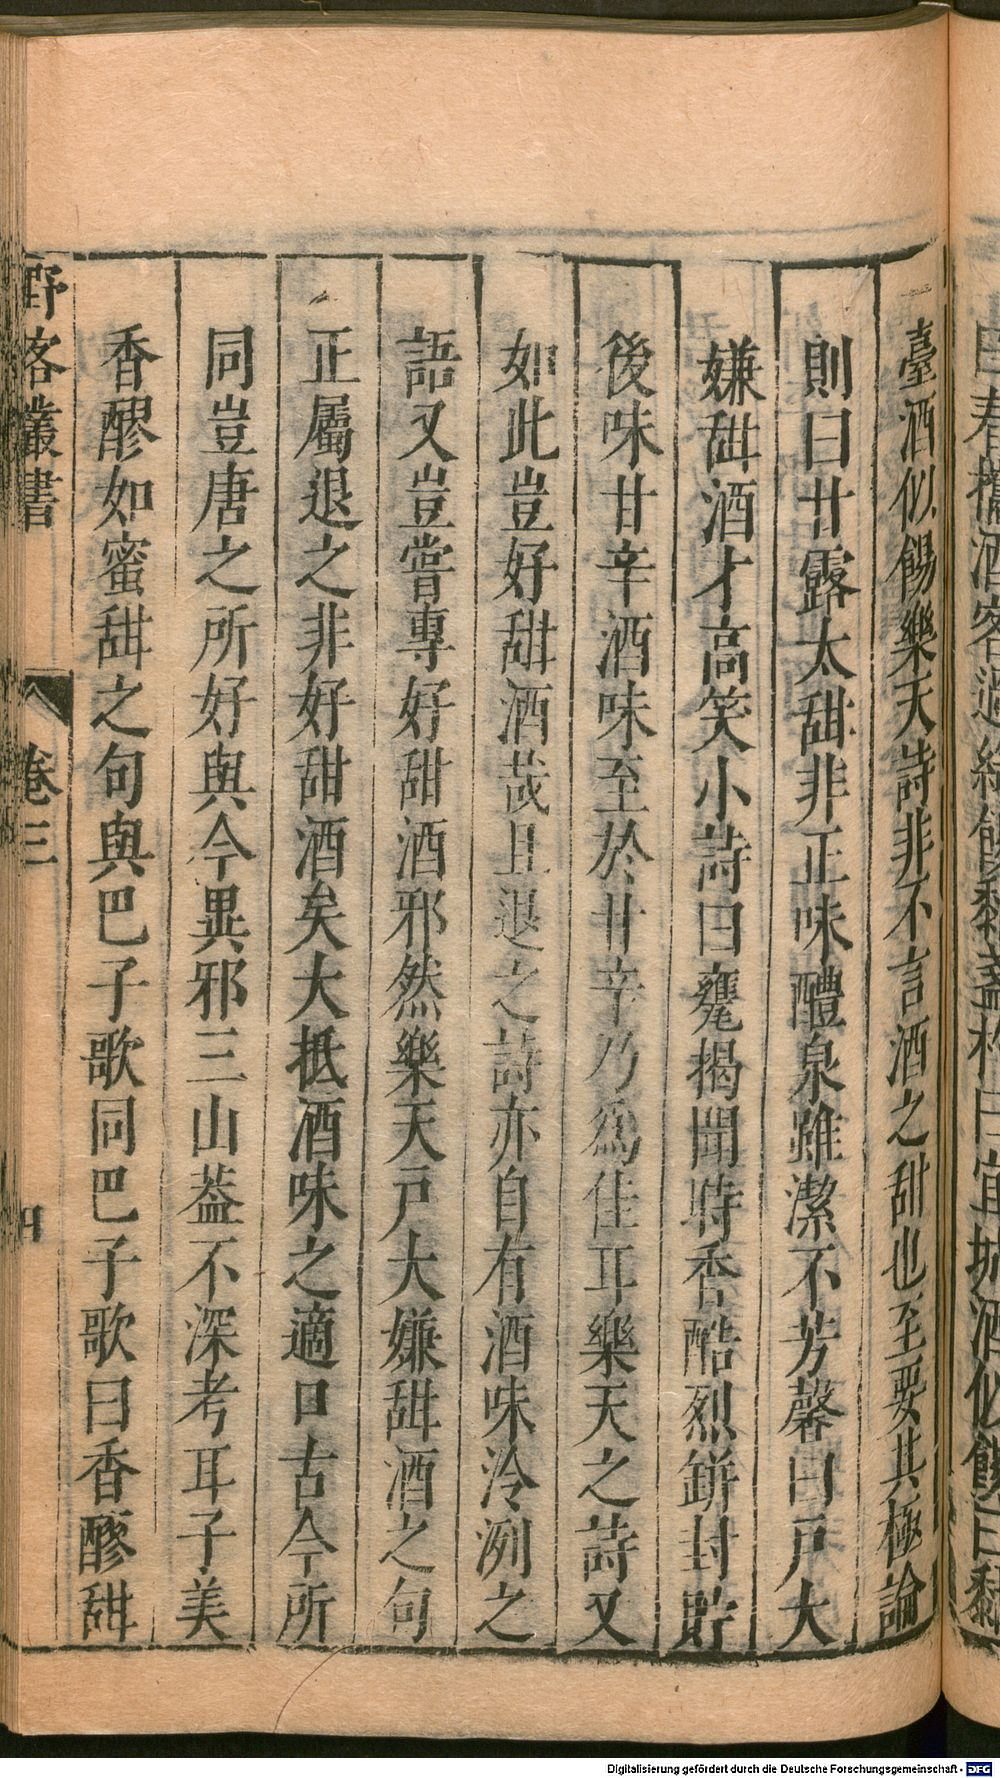 臺酒似餳樂天詩非不言酒之甜也至要其極論
則曰甘露太甜非正味醴泉雖潔不芳馨曰戸大
嫌甜酒才高笑小詩曰甕揭聞時香酷烈缾封貯
後味甘辛酒味至於甘辛乃爲佳耳樂天之詩又
如此豈好甜酒哉且退之詩亦自有酒味泠冽之
語又豈嘗專好甜酒邪然樂天戸大嫌甜酒之句
正屬退之非好甜酒矣大抵酒味之適口古今所
同豈唐之所好與今異邪三山葢不深考耳子美
香醪如蜜甜之句與巴子歌同巴子歌曰香醪甜
野客叢書 卷三 四
Digitalisierung gefördert durch die Deutsche Forschungsgemeinschaft - DFG